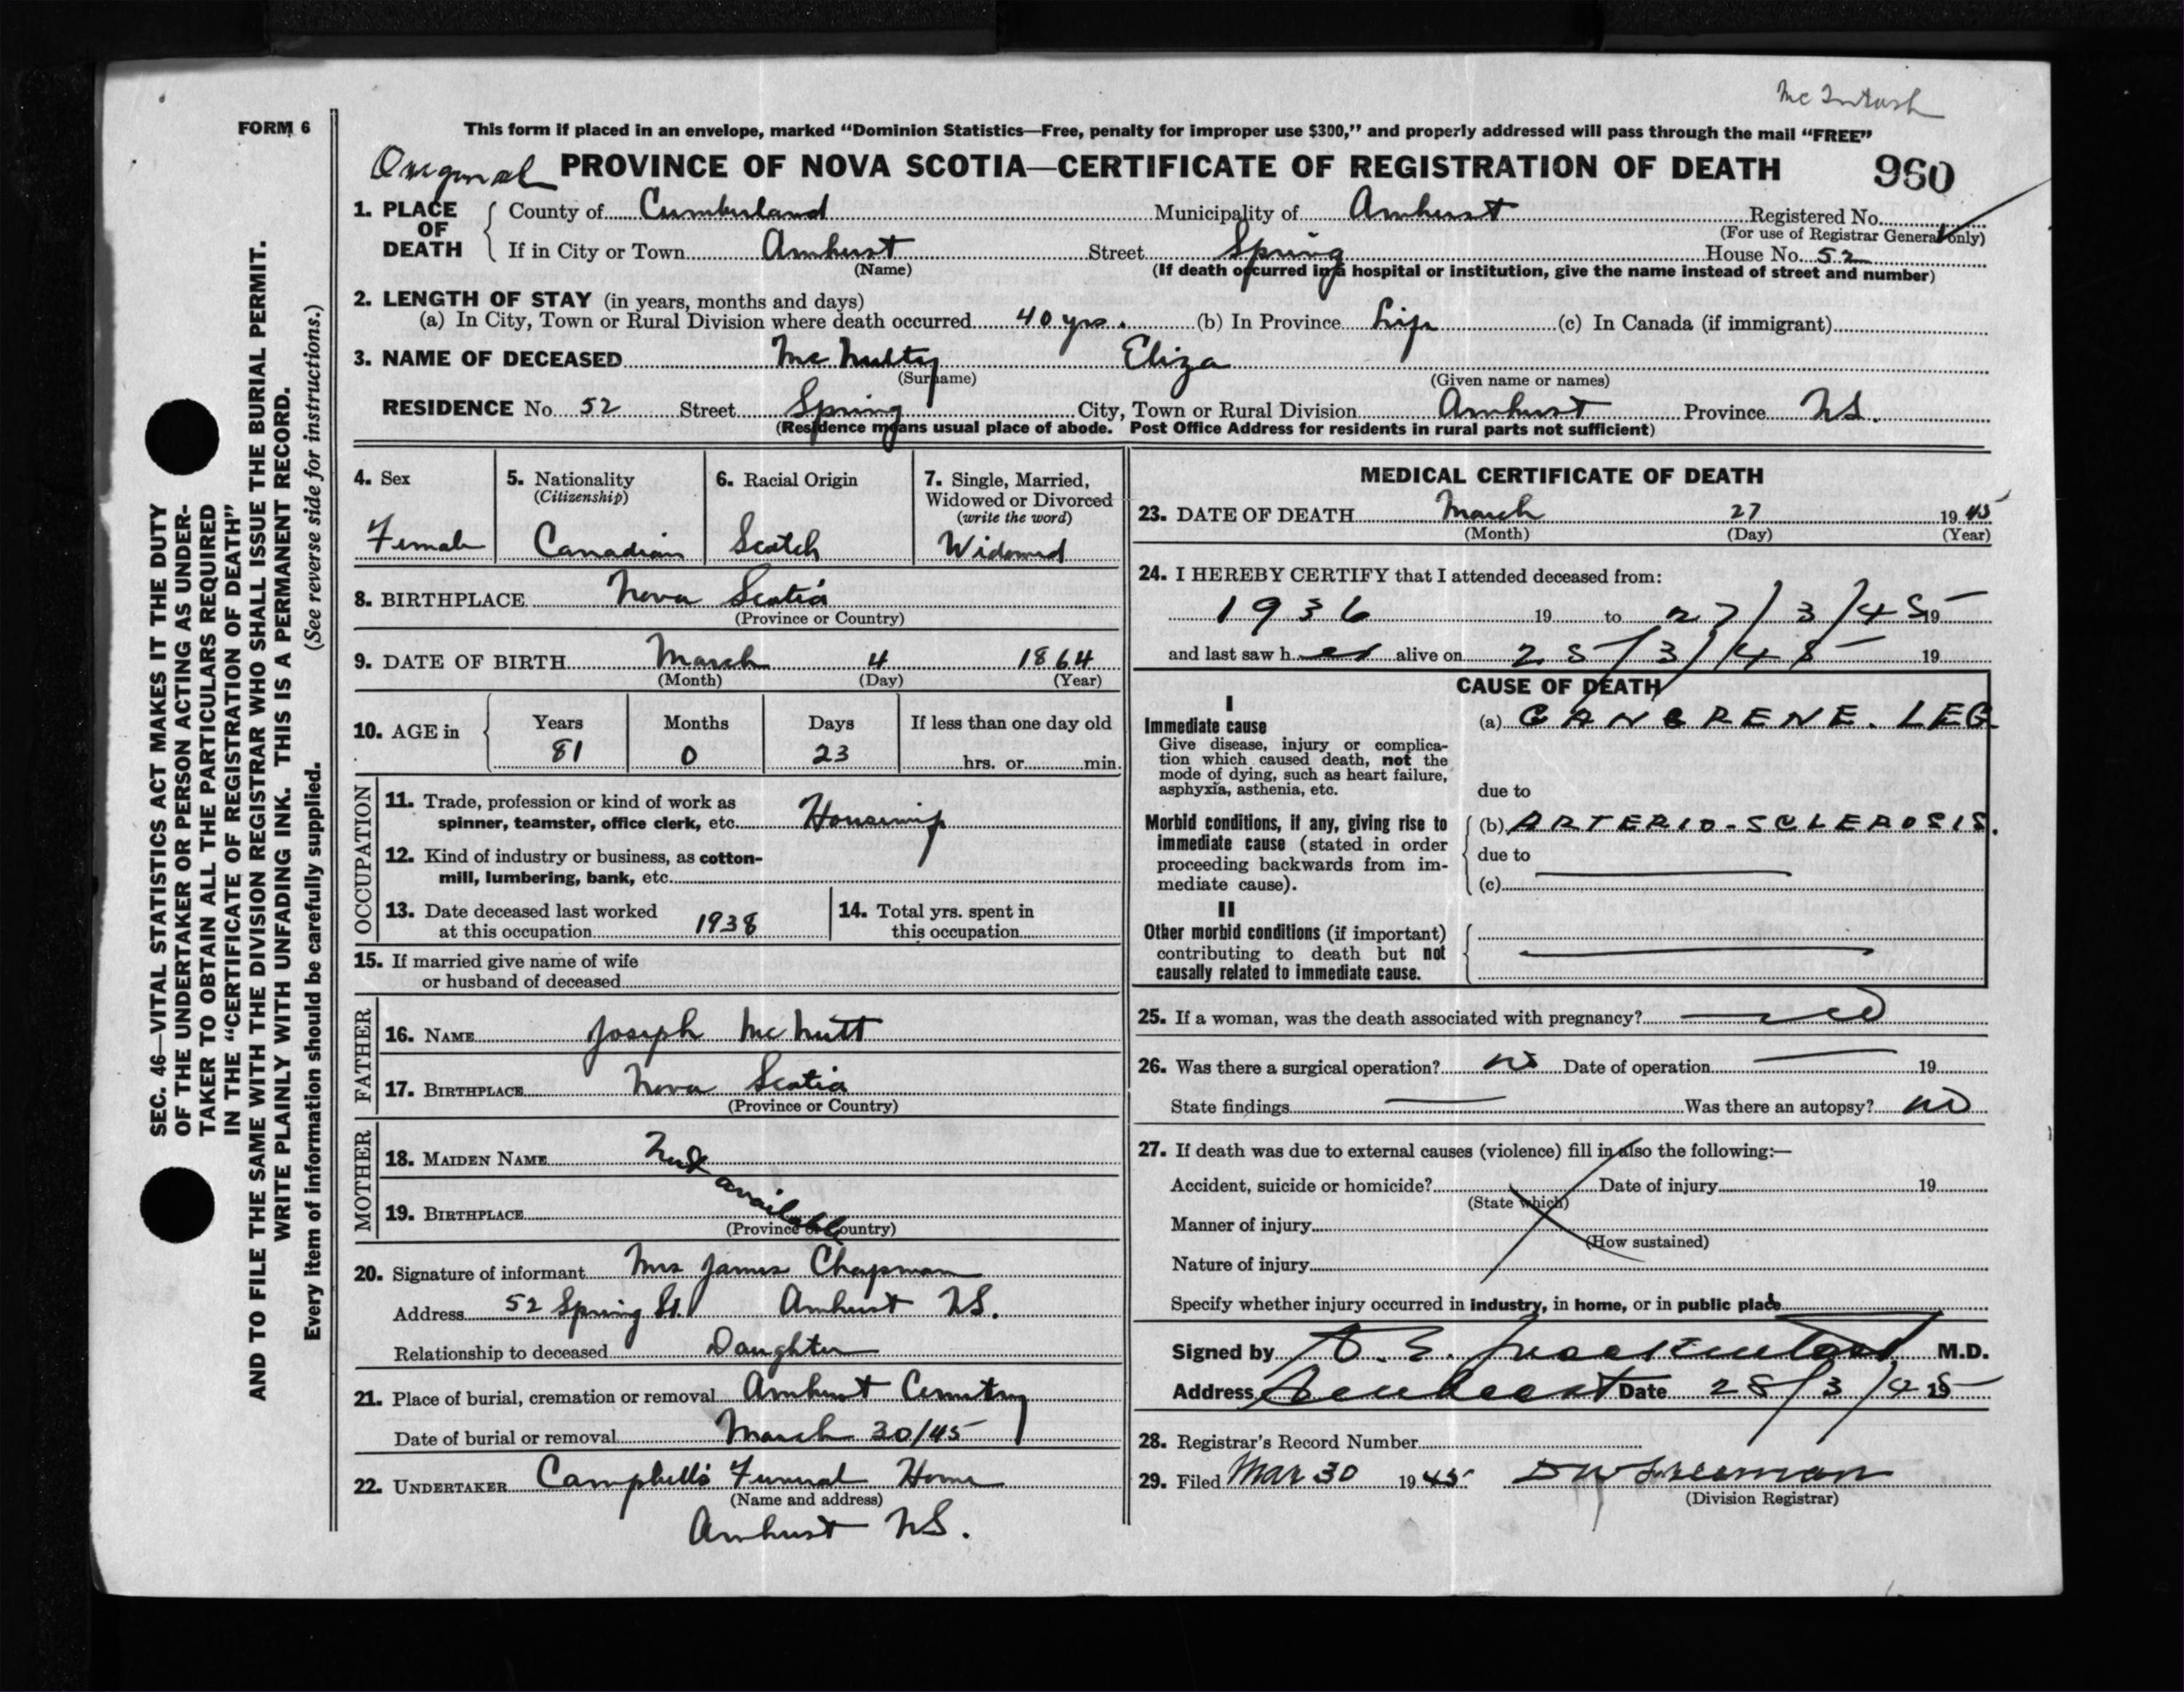 McIntosh
FORM 6
This form if placed in an envelope, marked “Dominion Statistics—Free, penalty for improper use $300,” and properly addressed will pass through the mail “FREE”
Original PROVINCE OF NOVA SCOTIA—CERTIFICATE OF REGISTRATION OF DEATH 960
1. PLACE OF DEATH County of Cumberland Municipality of Amherst Registered No.
(For use of Registrar General only)
If in City or Town Amherst Street Spring House No. 52
(Name) (If death occurred in a hospital or institution, give the name instead of street and number)
2. LENGTH OF STAY (in years, months and days)
(a) In City, Town or Rural Division where death occurred 40 yrs. (b) In Province Life (c) In Canada (if immigrant)
3. NAME OF DECEASED McNulty Eliza
(Surname) (Given name or names)
RESIDENCE No. 52 Street Spring City, Town or Rural Division Amherst Province N.S.
(Residence means usual place of abode. Post Office Address for residents in rural parts not sufficient)
4. Sex
Female
5. Nationality
(Citizenship)
Canadian
6. Racial Origin
Scotch
7. Single, Married,
Widowed or Divorced
(write the word)
Widowed
8. BIRTHPLACE Nova Scotia
(Province or Country)
9. DATE OF BIRTH March 4 1864
(Month) (Day) (Year)
10. AGE in Years Months Days If less than one day old
81 0 23 hrs. or min.
OCCUPATION
11. Trade, profession or kind of work as
spinner, teamster, office clerk, etc. Housewife
12. Kind of industry or business, as cotton-
mill, lumbering, bank, etc.
13. Date deceased last worked
at this occupation 1938
14. Total yrs. spent in
this occupation
15. If married give name of wife
or husband of deceased
FATHER
16. NAME Joseph McNutt
17. BIRTHPLACE Nova Scotia
(Province or Country)
MOTHER
18. MAIDEN NAME Not available
19. BIRTHPLACE
(Province or Country)
20. Signature of informant Mrs James Chapman
Address 52 Spring St. Amherst N.S.
Relationship to deceased Daughter
21. Place of burial, cremation or removal Amherst Cemetery
Date of burial or removal March 30/45
22. UNDERTAKER Campbell's Funeral Home
(Name and address)
Amherst N.S.
MEDICAL CERTIFICATE OF DEATH
23. DATE OF DEATH March 27 1945
(Month) (Day) (Year)
24. I HEREBY CERTIFY that I attended deceased from:
1936 19 to 27/3/45 19
and last saw h er alive on 25/3/45 19
CAUSE OF DEATH
I
Immediate cause
Give disease, injury or complica-
tion which caused death, not the
mode of dying, such as heart failure,
asphyxia, asthenia, etc.
(a) GANGRENE. LEG
due to
Morbid conditions, if any, giving rise to
immediate cause (stated in order
proceeding backwards from im-
mediate cause).
(b) ARTERIO-SCLEROSIS.
due to
(c)
II
Other morbid conditions (if important)
contributing to death but not
causally related to immediate cause.
25. If a woman, was the death associated with pregnancy? no
26. Was there a surgical operation? no Date of operation 19
State findings Was there an autopsy? no
27. If death was due to external causes (violence) fill in also the following:—
Accident, suicide or homicide? Date of injury 19
(State which)
Manner of injury
(How sustained)
Nature of injury
Specify whether injury occurred in industry, in home, or in public place
Signed by M.D.
Address Amherst Date 28/3/45 19
28. Registrar's Record Number
29. Filed Mar 30 1945 D W Freeman
(Division Registrar)
SEC. 46—VITAL STATISTICS ACT MAKES IT THE DUTY
OF THE UNDERTAKER OR PERSON ACTING AS UNDER-
TAKER TO OBTAIN ALL THE PARTICULARS REQUIRED
IN THE “CERTIFICATE OF REGISTRATION OF DEATH”
AND TO FILE THE SAME WITH THE DIVISION REGISTRAR WHO SHALL ISSUE THE BURIAL PERMIT.
WRITE PLAINLY WITH UNFADING INK. THIS IS A PERMANENT RECORD.
Every item of information should be carefully supplied. (See reverse side for instructions.)